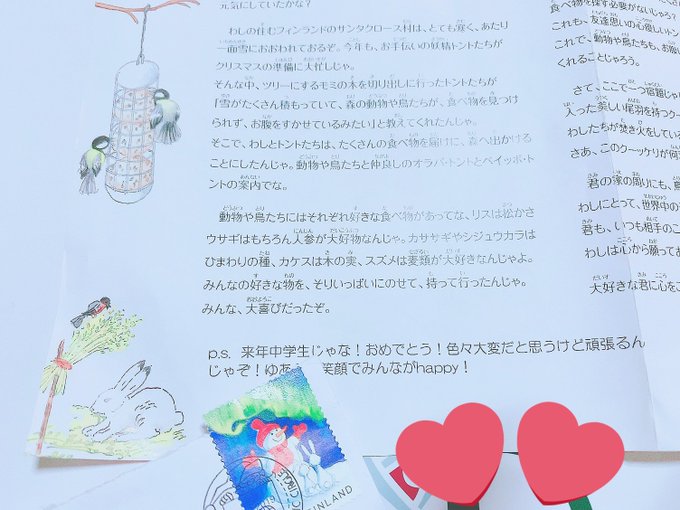 元気にしていたかな？
わしの住むフィンランドのサンタクロース村は、とても寒く、あたり
一面雪におおわれておるぞ。今年も、お手伝いの妖精トントたちが
クリスマスの準備に大忙しじゃ。
そんな中、ツリーにするモミの木を切り出しに行ったトントたちが
「雪がたくさん積もっていて、森の動物や鳥たちが、食べ物を見つけ
られず、お腹をすかせているみたい」と教えてくれたんじゃ。
そこで、わしとトントたちは、たくさんの食べ物を届けに、森へ出かける
ことにしたんじゃ。動物や鳥たちと仲良しのオラバ・トントとペイッポ・ト
ントの案内でな。
動物や鳥たちにはそれぞれ好きな食べ物があってな、リスは松かさ
ウサギはもちろん人参が大好物なんじゃ。カササギやシジュウカラは
ひまわりの種、カケスは木の実、スズメは麦類が大好きなんじゃよ。
みんなの好きな物を、そりいっぱいにのせて、持って行ったんじゃ。
みんな、大喜びだったぞ。
p.s. 来年中学生じゃな！おめでとう！色々大変だと思うけど頑張るん
じゃぞ！ゆあ 笑顔でみんながhappy！
食べ物を探す必要がないじゃろう？
これも、友達思いの心優しいトン
これで、動物や鳥たちも、お腹
くれることじゃろう。
さて、ここで一つ宿題じゃ
入った美しい尾羽を持つクー
わしたちが焚き火をしている
さあ、このクーッケリが何
君の家の周りにも、
わしにとって、世界中の
君も、いつも相手のこ
わしは心から願ってお
大好きな君に心をこ
CIRCLE
FINLAND